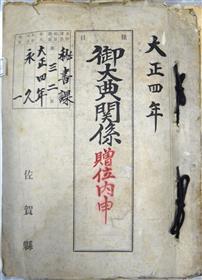 大正四年
種目
御大典關係
贈位内申
秘書課
第三二
大正四年
永久
一
佐賀縣